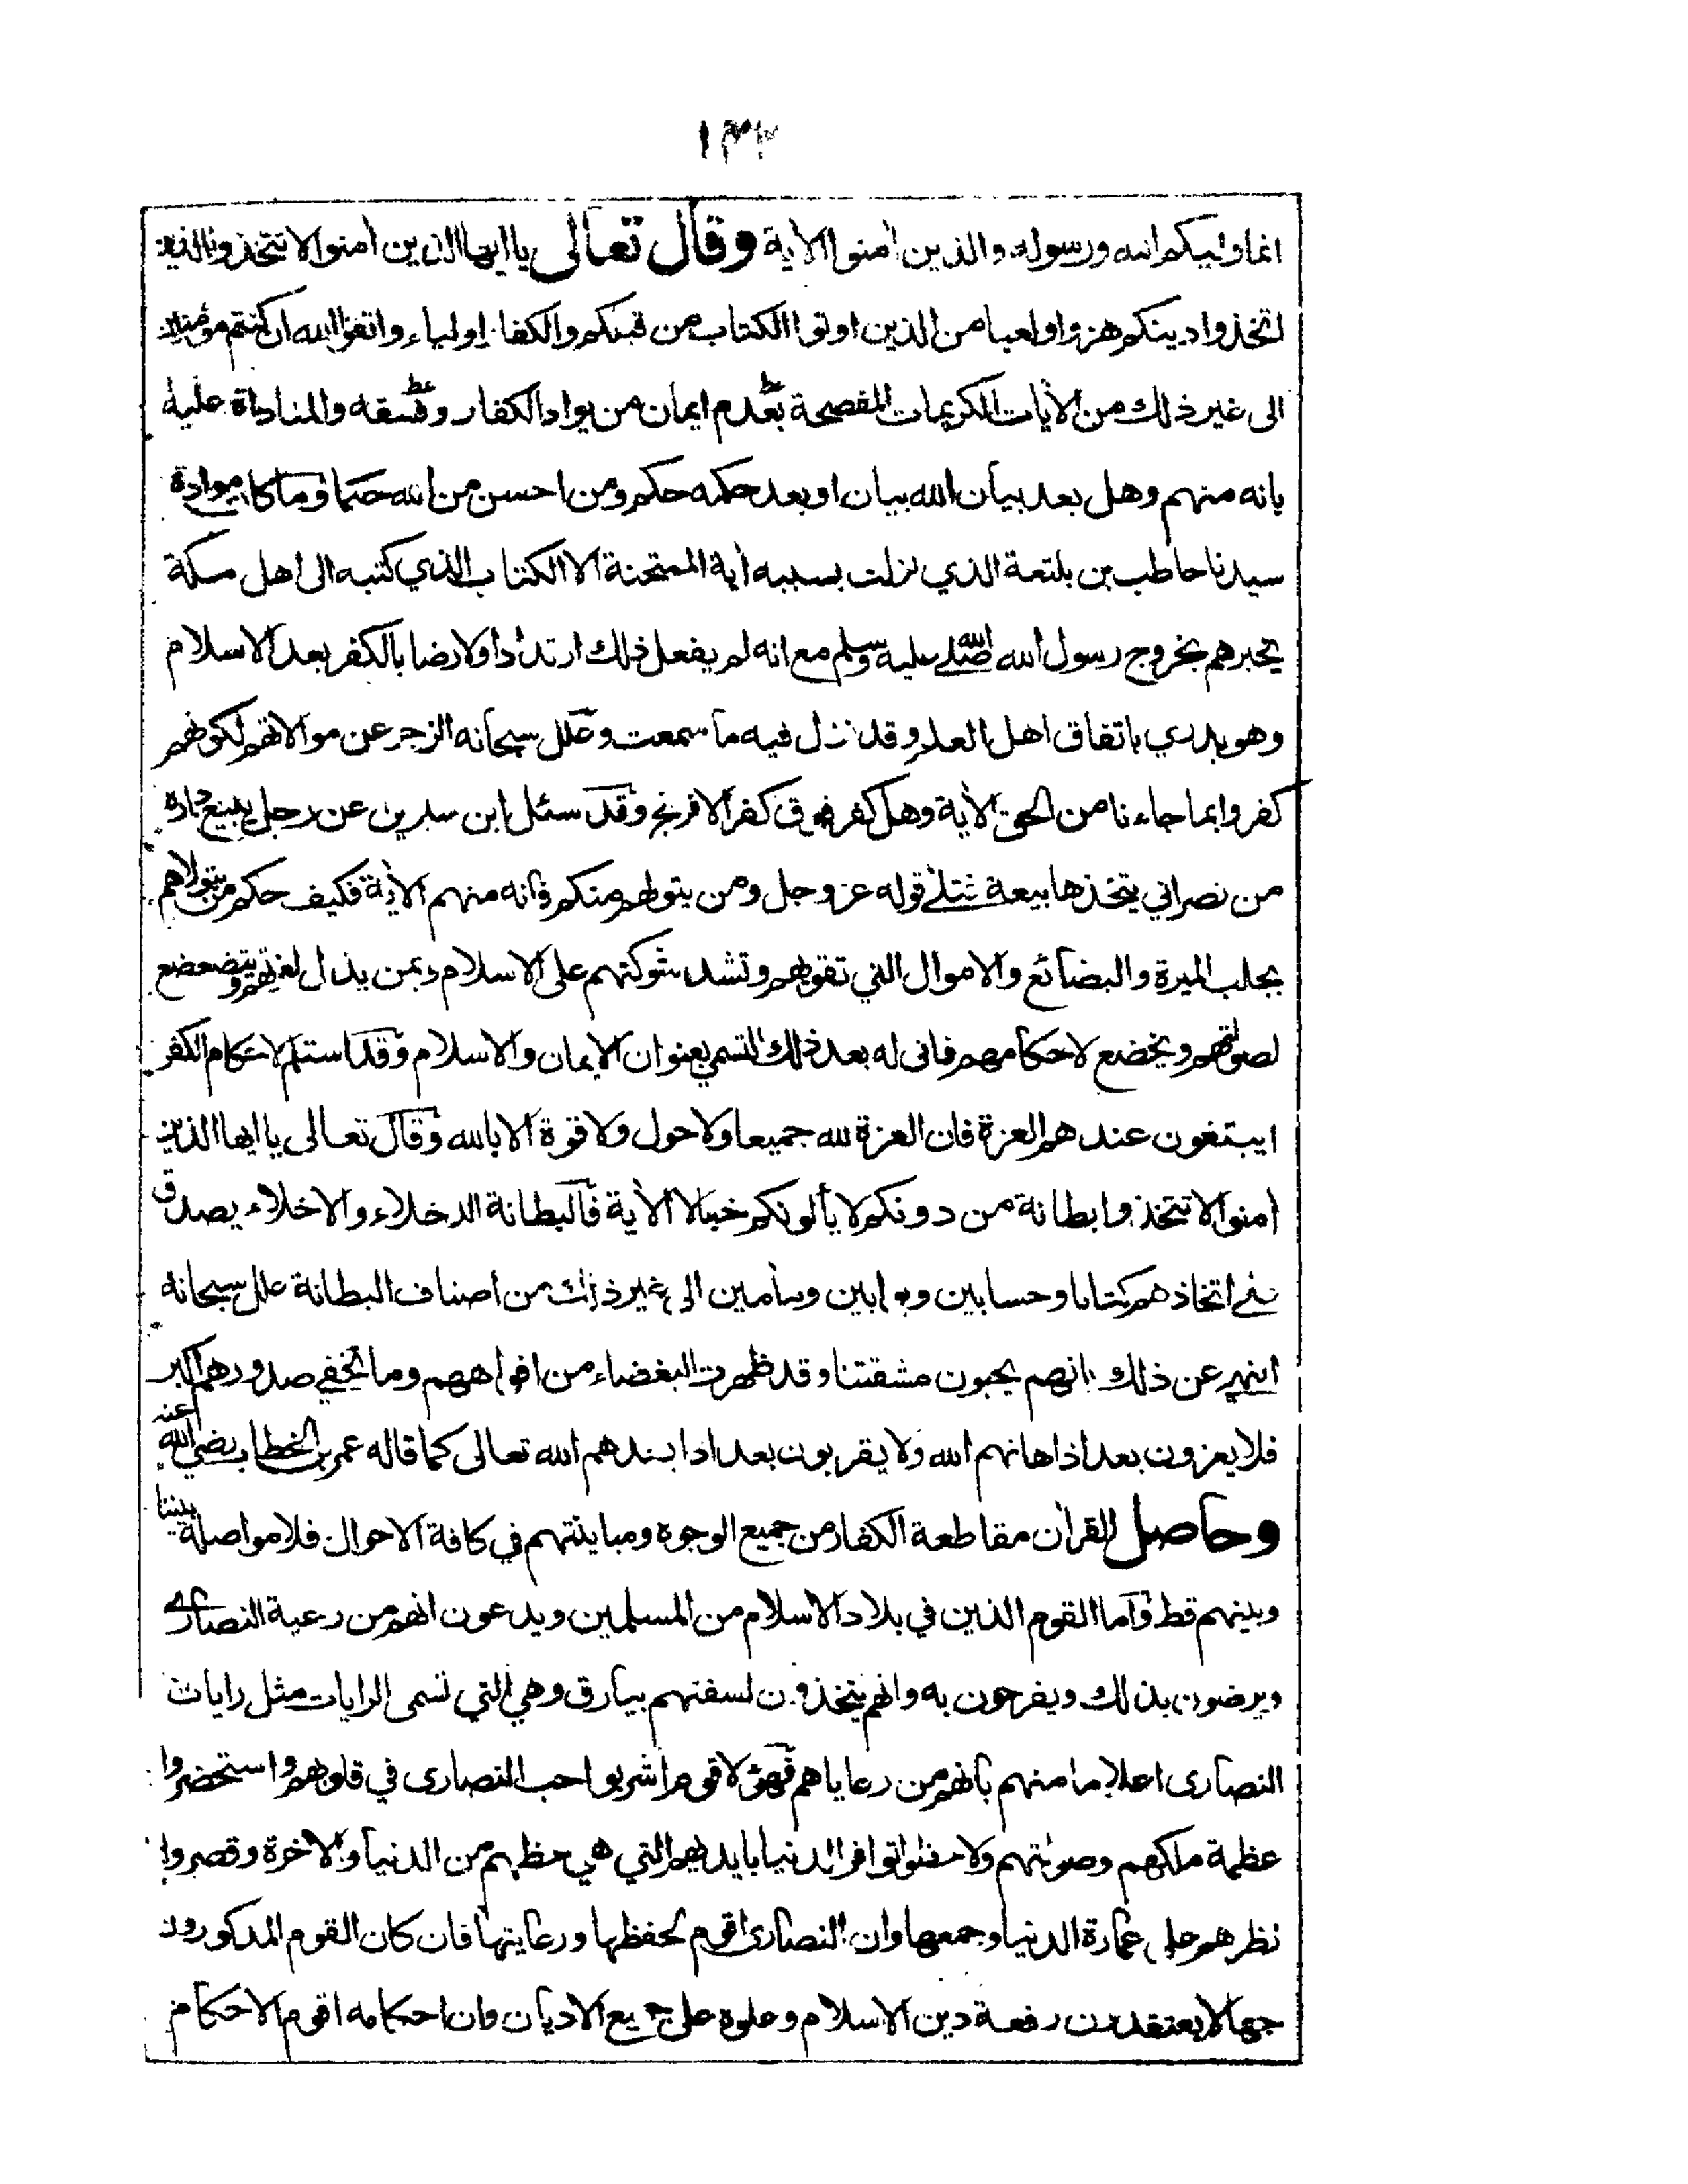 ١٣٢
انما وليكم الله ورسوله والذين اٰمنوا الاٰية وقال تعالى يا ايها الذين اٰمنوا لا تتخذوا الذين
اتخذوا دينكم هزوا ولعبا من الذين اوتوا الكتاب من قبلكم والكفار اولياء واتقوا الله ان كنتم مؤمنين
الى غير ذلك من الاٰيات الكريمات المفصحة بعدم ايمان من يواد الكفار وفسقه والمناداة عليه
بانه منهم وهل بعد بيان الله بيان او بعد حكمه حكم ومن احسن من الله حكما وما كان موادة
سيدنا حاطب بن بلتعة الذي نزلت بسببه اٰية الممتحنة الا الكتاب الذي كتبه الى اهل مكة
يخبرهم بخروج رسول الله صلى الله عليه وسلم مع انه لم يفعل ذلك ارتدادا ولا رضا بالكفر بعد الاسلام
وهو بدري باتفاق اهل العلم وقد نزل فيه ما سمعت وعلل سبحانه الزجر عن موالاتهم لكونهم
كفروا بما جاءنا من الحق الاٰية وهل كفر فوق كفر الافرنج وقد سئل ابن سيرين عن رجل يبيع داره
من نصراني يتخذها بيعة فتلى قوله عز وجل ومن يتولهم منكم فانه منهم الاٰية فكيف حكم من يتولاهم
بجلب الميرة والبضائع والاموال التي تقويهم وتشد شوكتهم على الاسلام وبمن يذل لعزتهم ويتضعضع
لصولتهم ويخضع لاحكامهم فانى له بعد ذلك التسمي بعنوان الايمان والاسلام وقد استلم لاحكام الكفر
ايبتغون عندهم العزة فان العزة لله جميعا ولا حول ولا قوة الا بالله وقال تعالى يا ايها الذين
اٰمنوا لا تتخذوا بطانة من دونكم لا يألونكم خبالا الاٰية فالبطانة الدخلاء والاخلاء يصدق
على اتخاذهم كتابا وحسابين وبوابين الى غير ذلك من اصناف البطانة علل سبحانه
النهي عن ذلك بانهم يحبون مشقتنا وقد ظهرت البغضاء من افواههم وما تخفي صدورهم اكبر
فلا يعزون بعد اذ اهانهم الله ولا يقربون بعد اذ ابعدهم الله تعالى كما قاله عمر بن الخطاب رضي الله عنه
وحاصل القراٰن مقاطعة الكفار من جميع الوجوه ومباينتهم في كافة الاحوال فلا مواصلة بيننا
وبينهم قط واما القوم الذين في بلاد الاسلام من المسلمين ويدعون انهم من رعية النصارى
ويرضون بذلك ويفرحون به وانهم يتخذون لسفنهم بيارق وهي التي تسمى الرايات مثل رايات
النصارى اعلاما منهم بانهم من رعاياهم فهؤلاء قوم اشربوا حب النصارى في قلوبهم واستحضروا
عظمة ملكهم وصولتهم ولاحظوا توافر الدنيا بايديهم التي هي حظهم من الدنيا والاخرة وقصروا
نظرهم على عمارة الدنيا وجمعها وان النصارى اقوم لحفظها ورعايتها فان كان القوم المذكورون
جهالا يعتقدون رفعة دين الاسلام وعلوه على جميع الاديان وان احكامه اقوم الاحكام